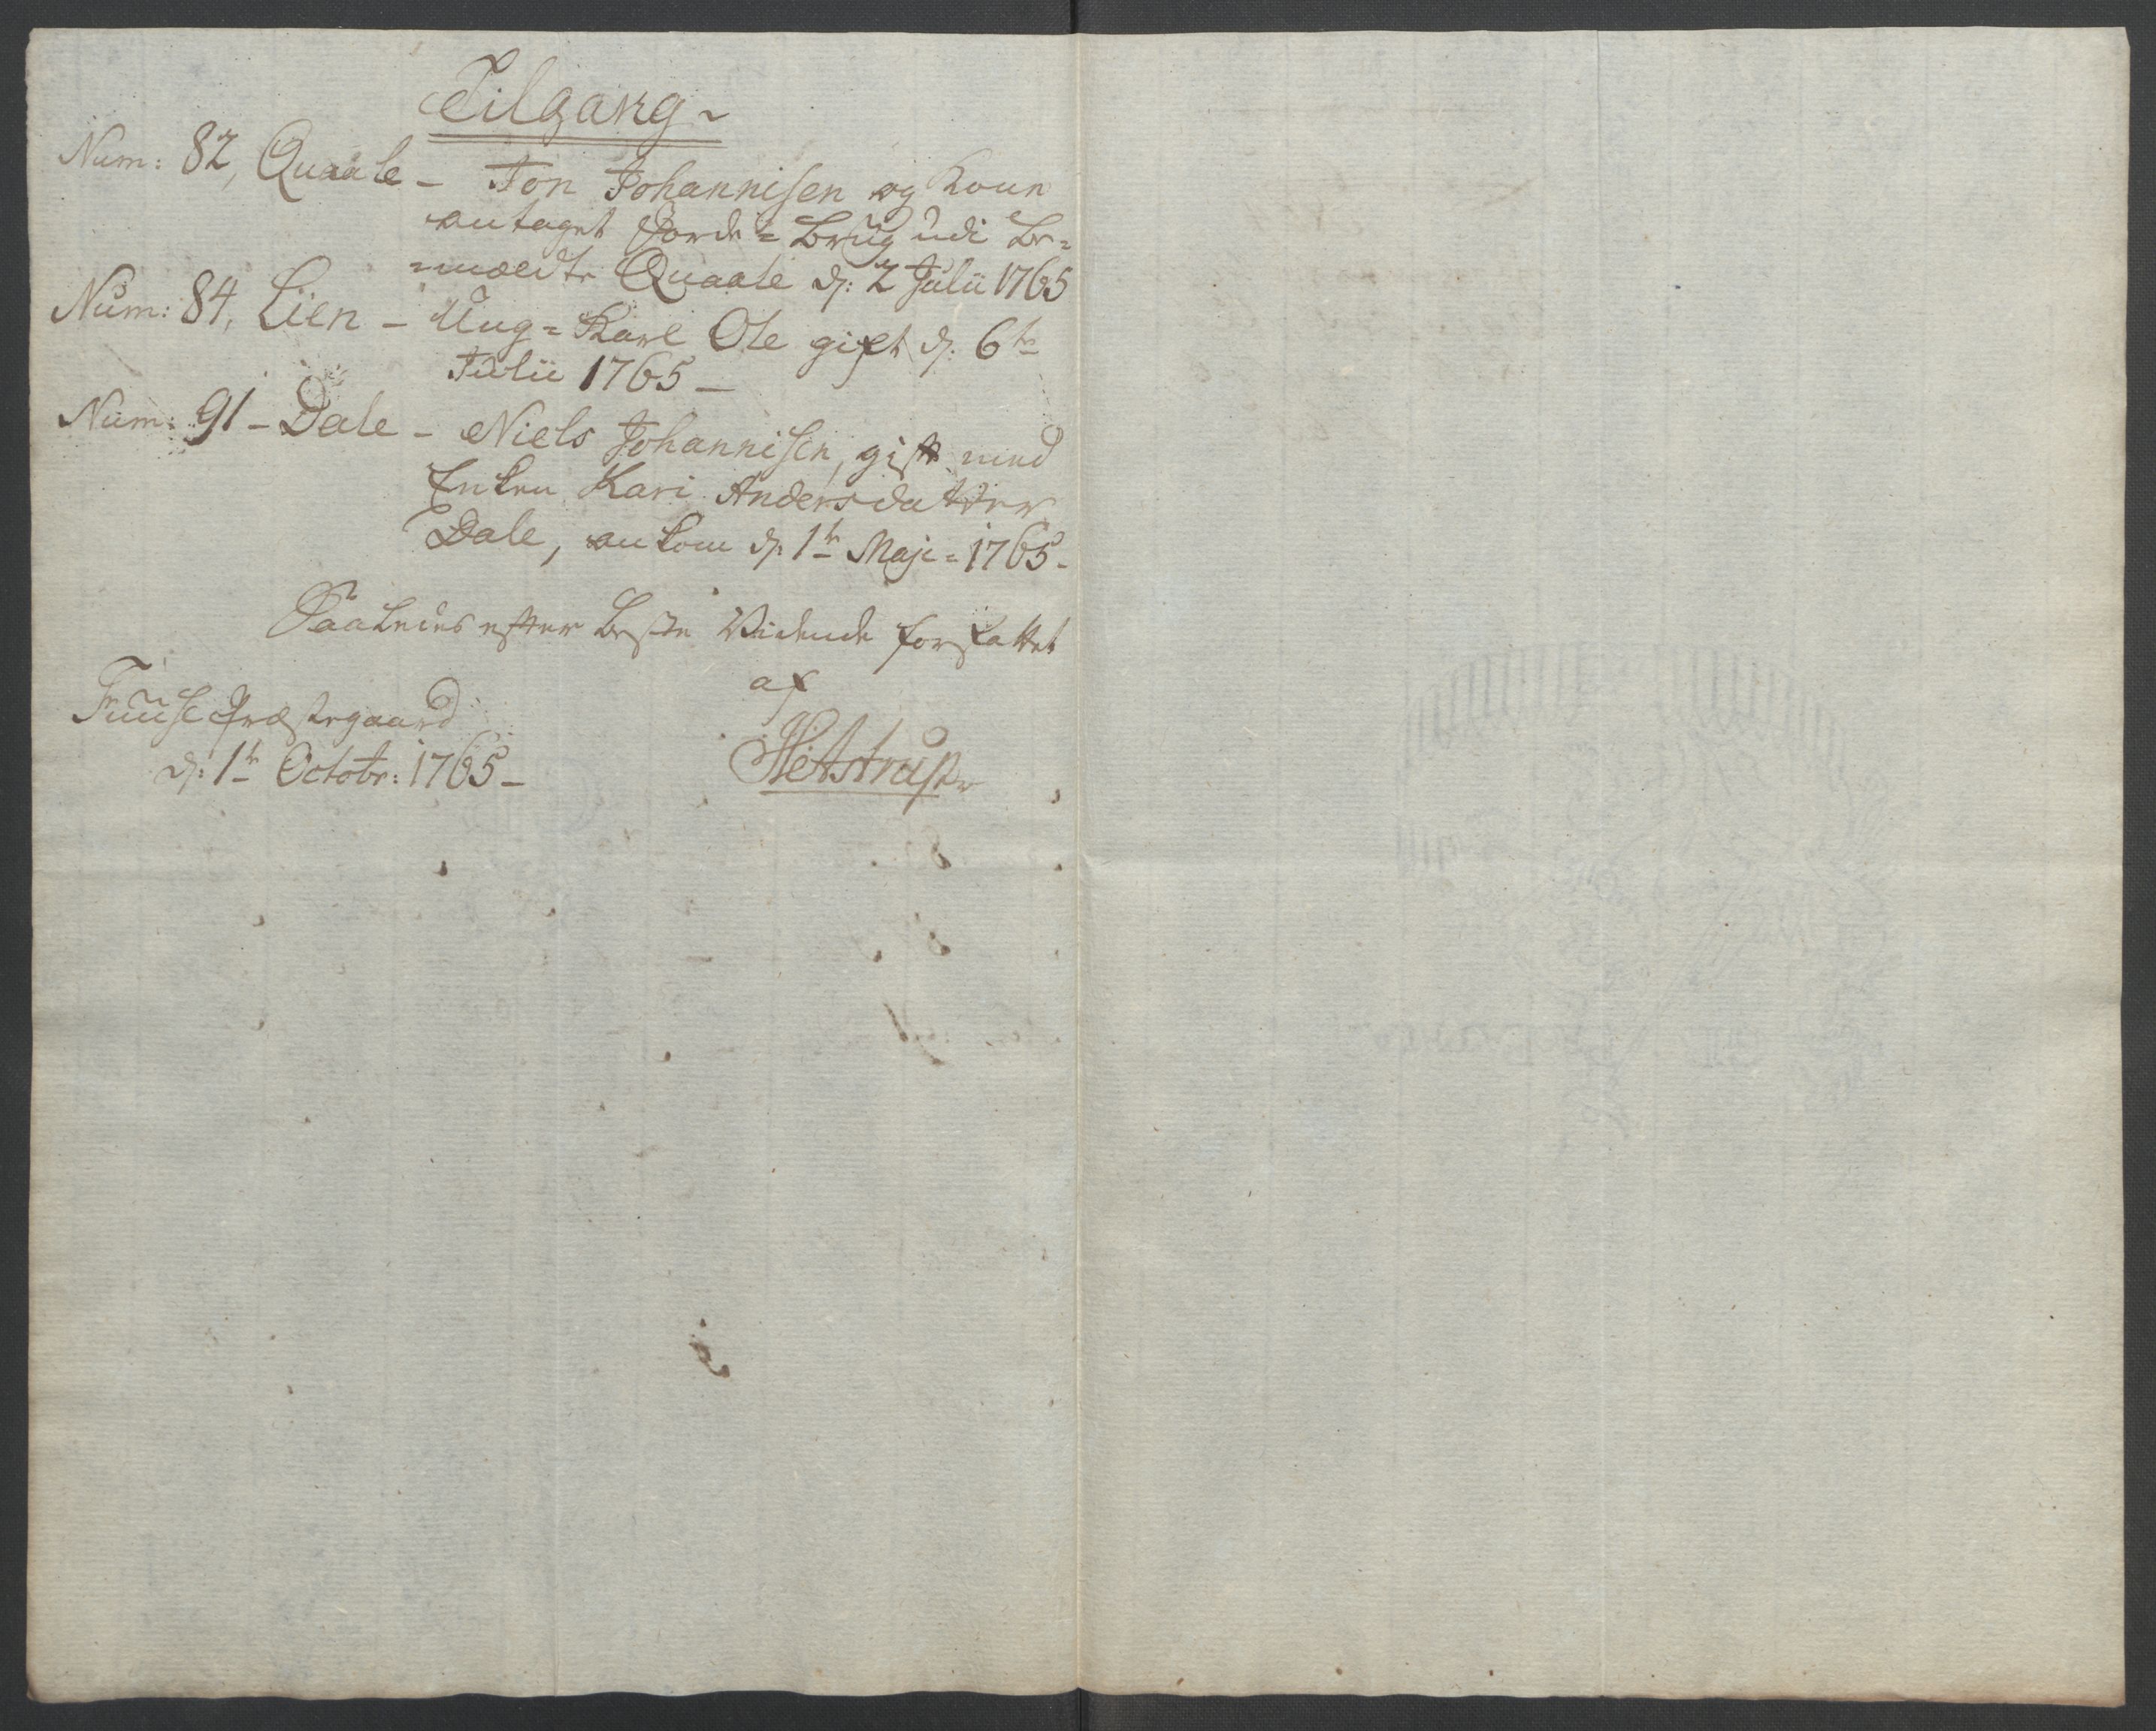 Tilgang
Num: 82, Quaale - Jon Johannisen og Kone
antaget Jorde=Brug udi be=
=mældte Quaale d: 2 Julii 1765
Num: 84, Lien - Ung=Karl Ole gift d: 6te
Julii 1765 -
Num: 91 - Dale - Niels Johannisen, gift med
Enken Kari Andersdatter
Dale, ankom d: 1te Maji = 1765 -
Saaledes efter beste Vidende forfattet
af
Fuuse Præstegaard
d: 1te Octobr: 1765 -